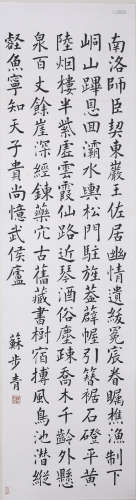 南洛師臣契東巖王佐居幽情遺紱冕宸眷矚樵漁制下
峒山蹕恩回灞水輿松門駐旌蓋薜幄引簪裾石磴平黃
陸烟樓半紫虛雲霞仙路近琴酒俗塵疎喬木千齡外懸
泉百丈餘崖深經鍊藥穴古舊藏書樹宿摶風鳥池潛縱
壑魚寧知天子貴尚憶武侯廬
蘇步青